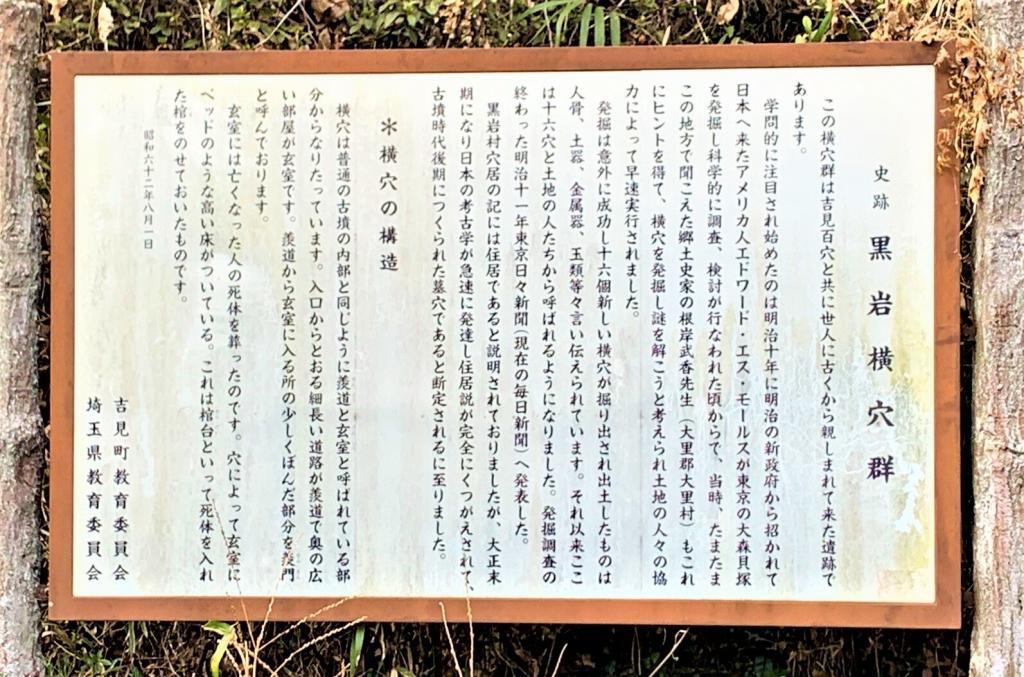 史跡 黒岩横穴群
この横穴群は吉見百穴と共に世人に古くから親しまれて来た遺跡で
あります。
学問的に注目され始めたのは明治十年に明治の新政府から招かれて
日本へ来たアメリカ人エドワード・エス・モールスが東京の大森貝塚
を発掘し科学的に調査、検討が行なわれた頃からで、当時、たまたま
この地方で聞こえた郷土史家の根岸武香先生(大里郡大里村)もこれ
にヒントを得て、横穴を発掘し謎を解こうと考えられ土地の人々の協
力によって早速実行されました。
発掘は意外に成功し十六個新しい横穴が掘り出され出土したものは
人骨、土器、金属器、玉類等々言い伝えられています。それ以来ここ
は十六穴と土地の人たちから呼ばれるようになりました。発掘調査の
終わった明治十一年東京日々新聞(現在の毎日新聞)へ発表した。
黒岩村穴居の記には住居であると説明されておりましたが、大正末
期になり日本の考古学が急速に発達し住居説が完全にくつがえされて、
古墳時代後期につくられた墓穴であると断定されるに至りました。
＊横穴の構造
横穴は普通の古墳の内部と同じように羨道と玄室と呼ばれている部
分からなりたっています。入口からとおる細長い道路が羨道で奥の広
い部屋が玄室です。羨道から玄室に入る所の少しくぼんだ部分を羨門
と呼んでおります。
玄室には亡くなった人の死体を葬ったのです。穴によって玄室に
ベッドのような高い床がついている。これは棺台といって死体を入れ
た棺をのせておいたものです。
昭和六十二年八月一日
吉見町教育委員会
埼玉県教育委員会